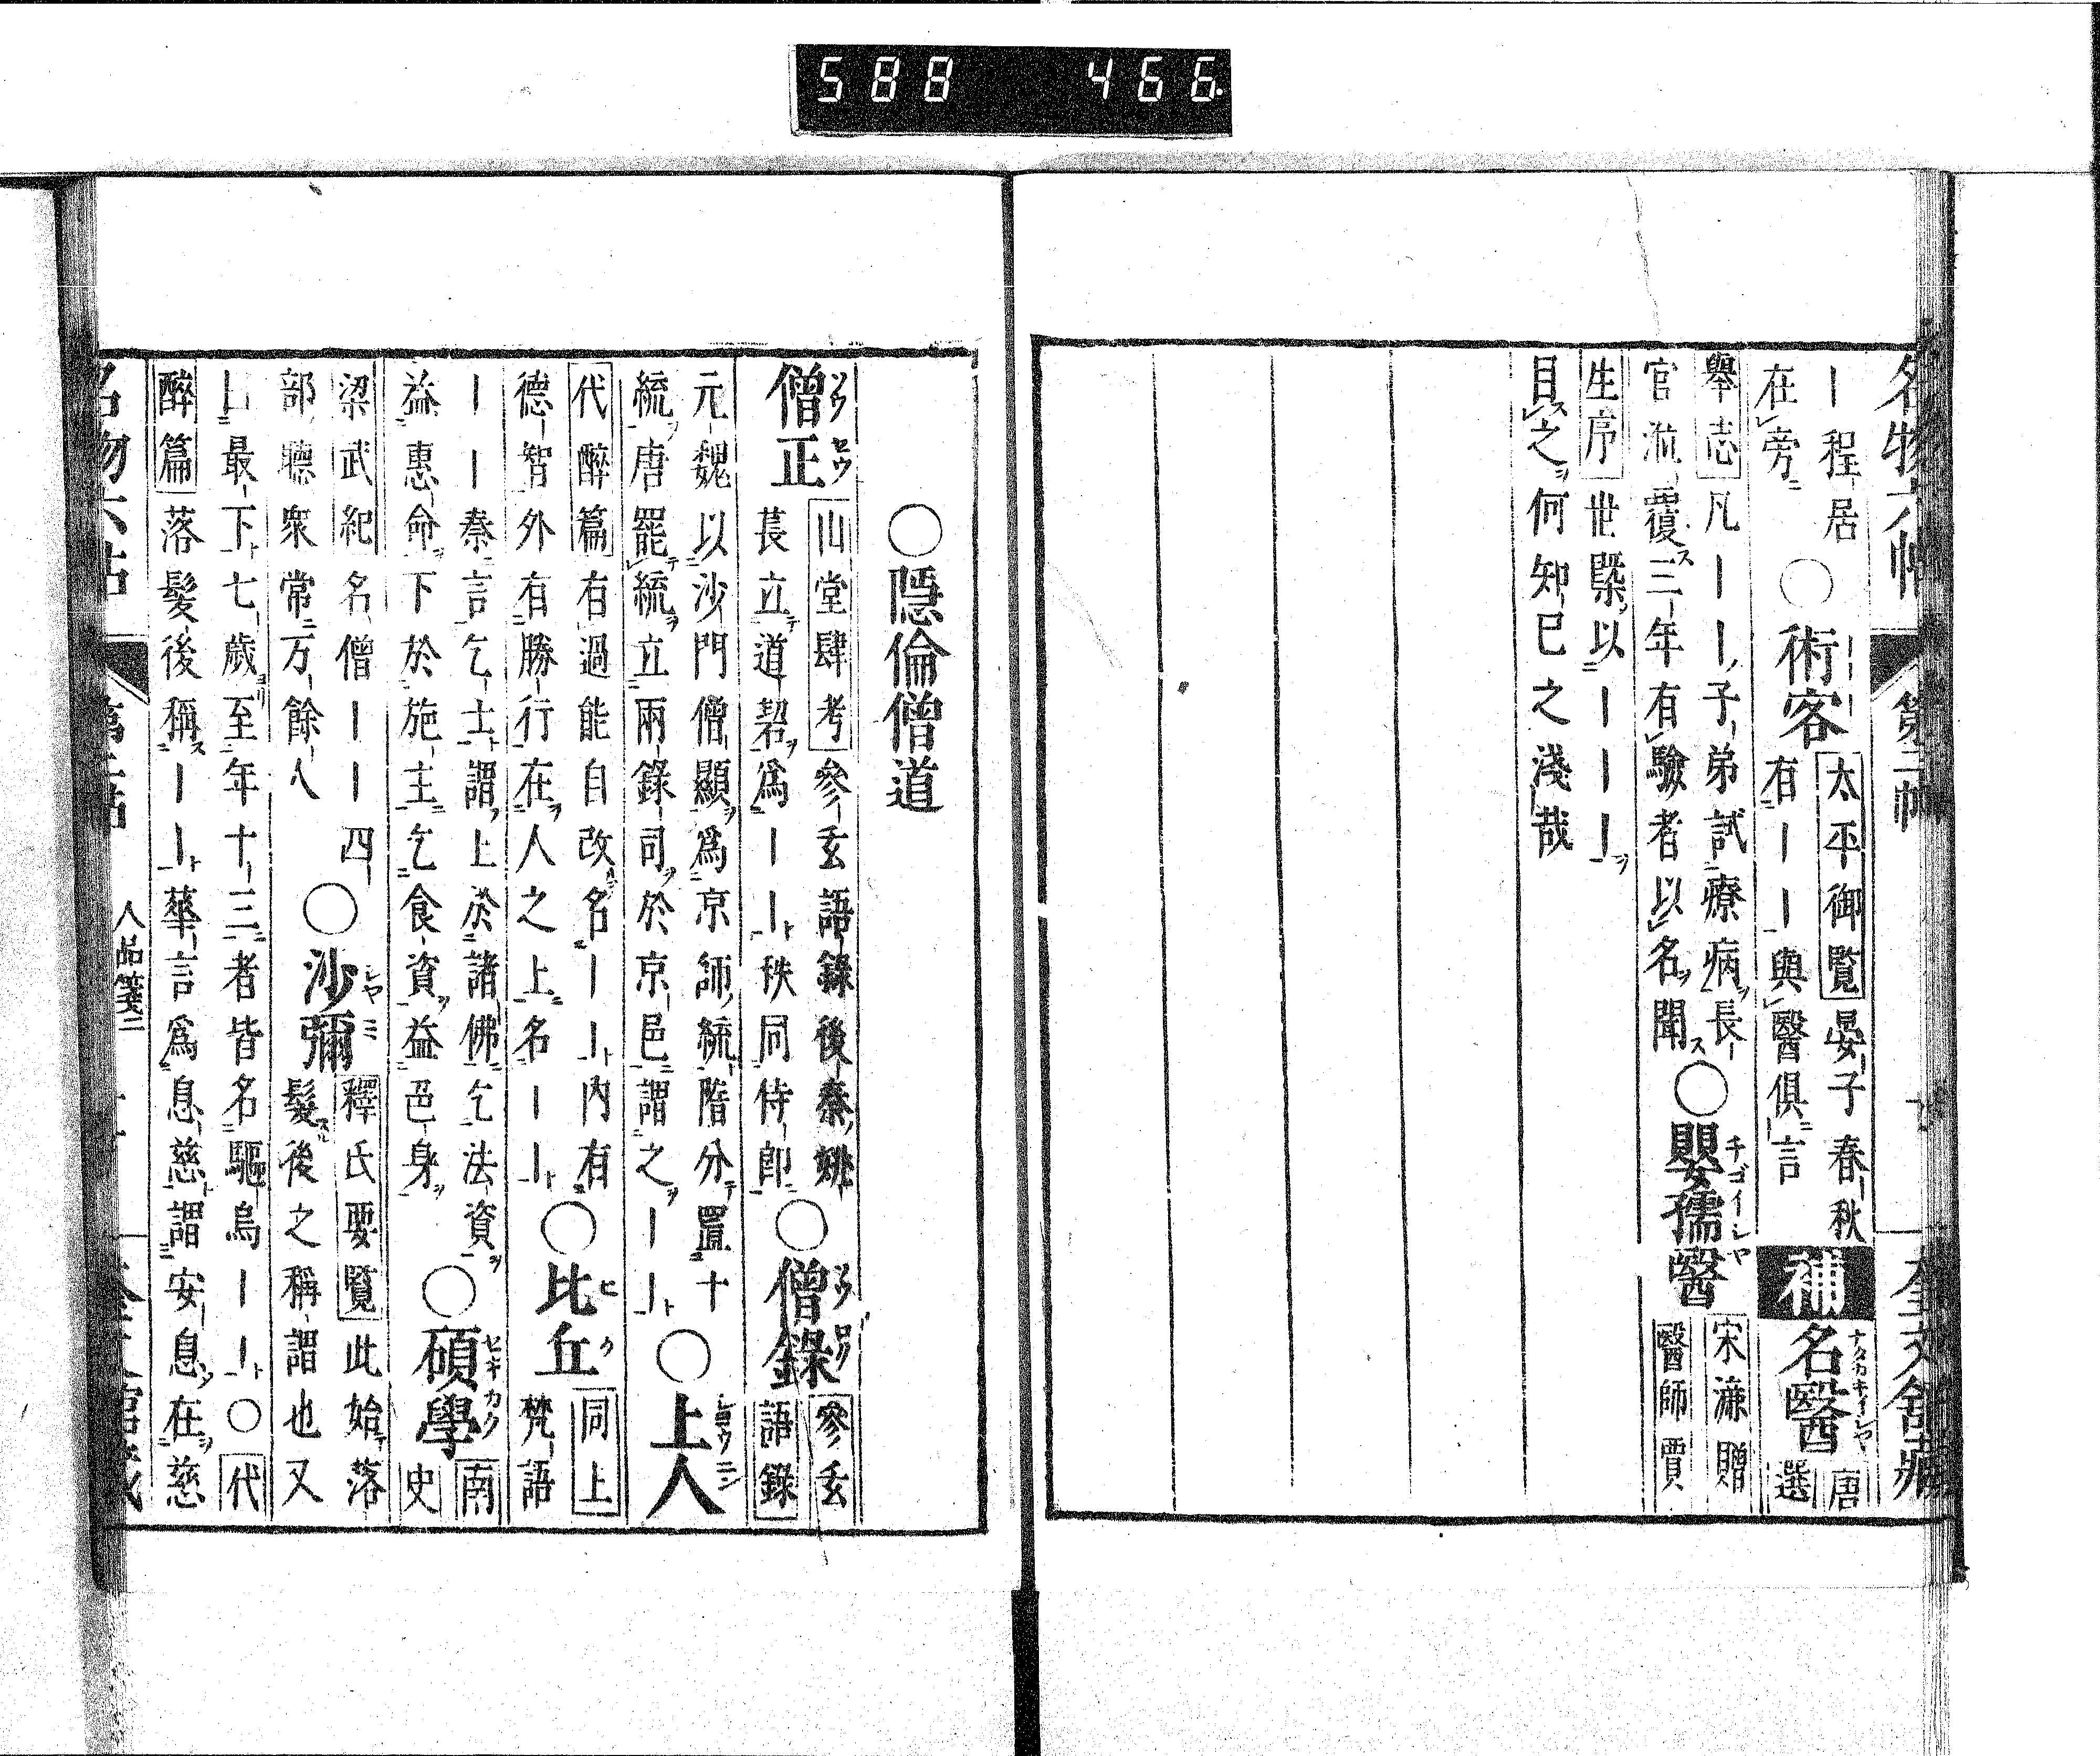 588 466
名物六帖 第二帖 奎文舘藏
｜程居
在旁
○術客
太平御覧晏子春秋
有｜｜與醫俱言
補
名醫 ナタカキイシヤ
唐選
舉志凡｜｜子弟試療病長
官涖覆三年有驗者以名聞
○嬰孺醫 チゴイシヤ
宋濂贈
醫師賈
生序世槩以｜｜｜
目之何知已之淺哉
○隱倫僧道
僧正
山堂肆考參玄語錄後秦姚
萇立道䂮爲｜｜秩同侍郎
○僧錄
參玄
語錄
元魏以沙門僧顯爲京師統階分置十
統唐罷統立兩錄司於京邑謂之｜｜
○上人
代醉篇有過能自改名｜｜內有
德智外有勝行在人之上名｜｜
○比丘 ヒク
同上
梵語
｜｜秦言乞士謂上於諸佛乞法資
益惠命下於施主乞食資益色身
○碩學 セキカク
南
史
梁武紀名僧｜｜四
部聽衆常万餘人
○沙彌 シヤミ
釋氏要覧此始落
髮後之稱謂也又
最下七歲至年十三者皆名驅烏｜｜○代
醉篇落髮後稱｜｜華言爲息慈謂安息在慈
人品箋二